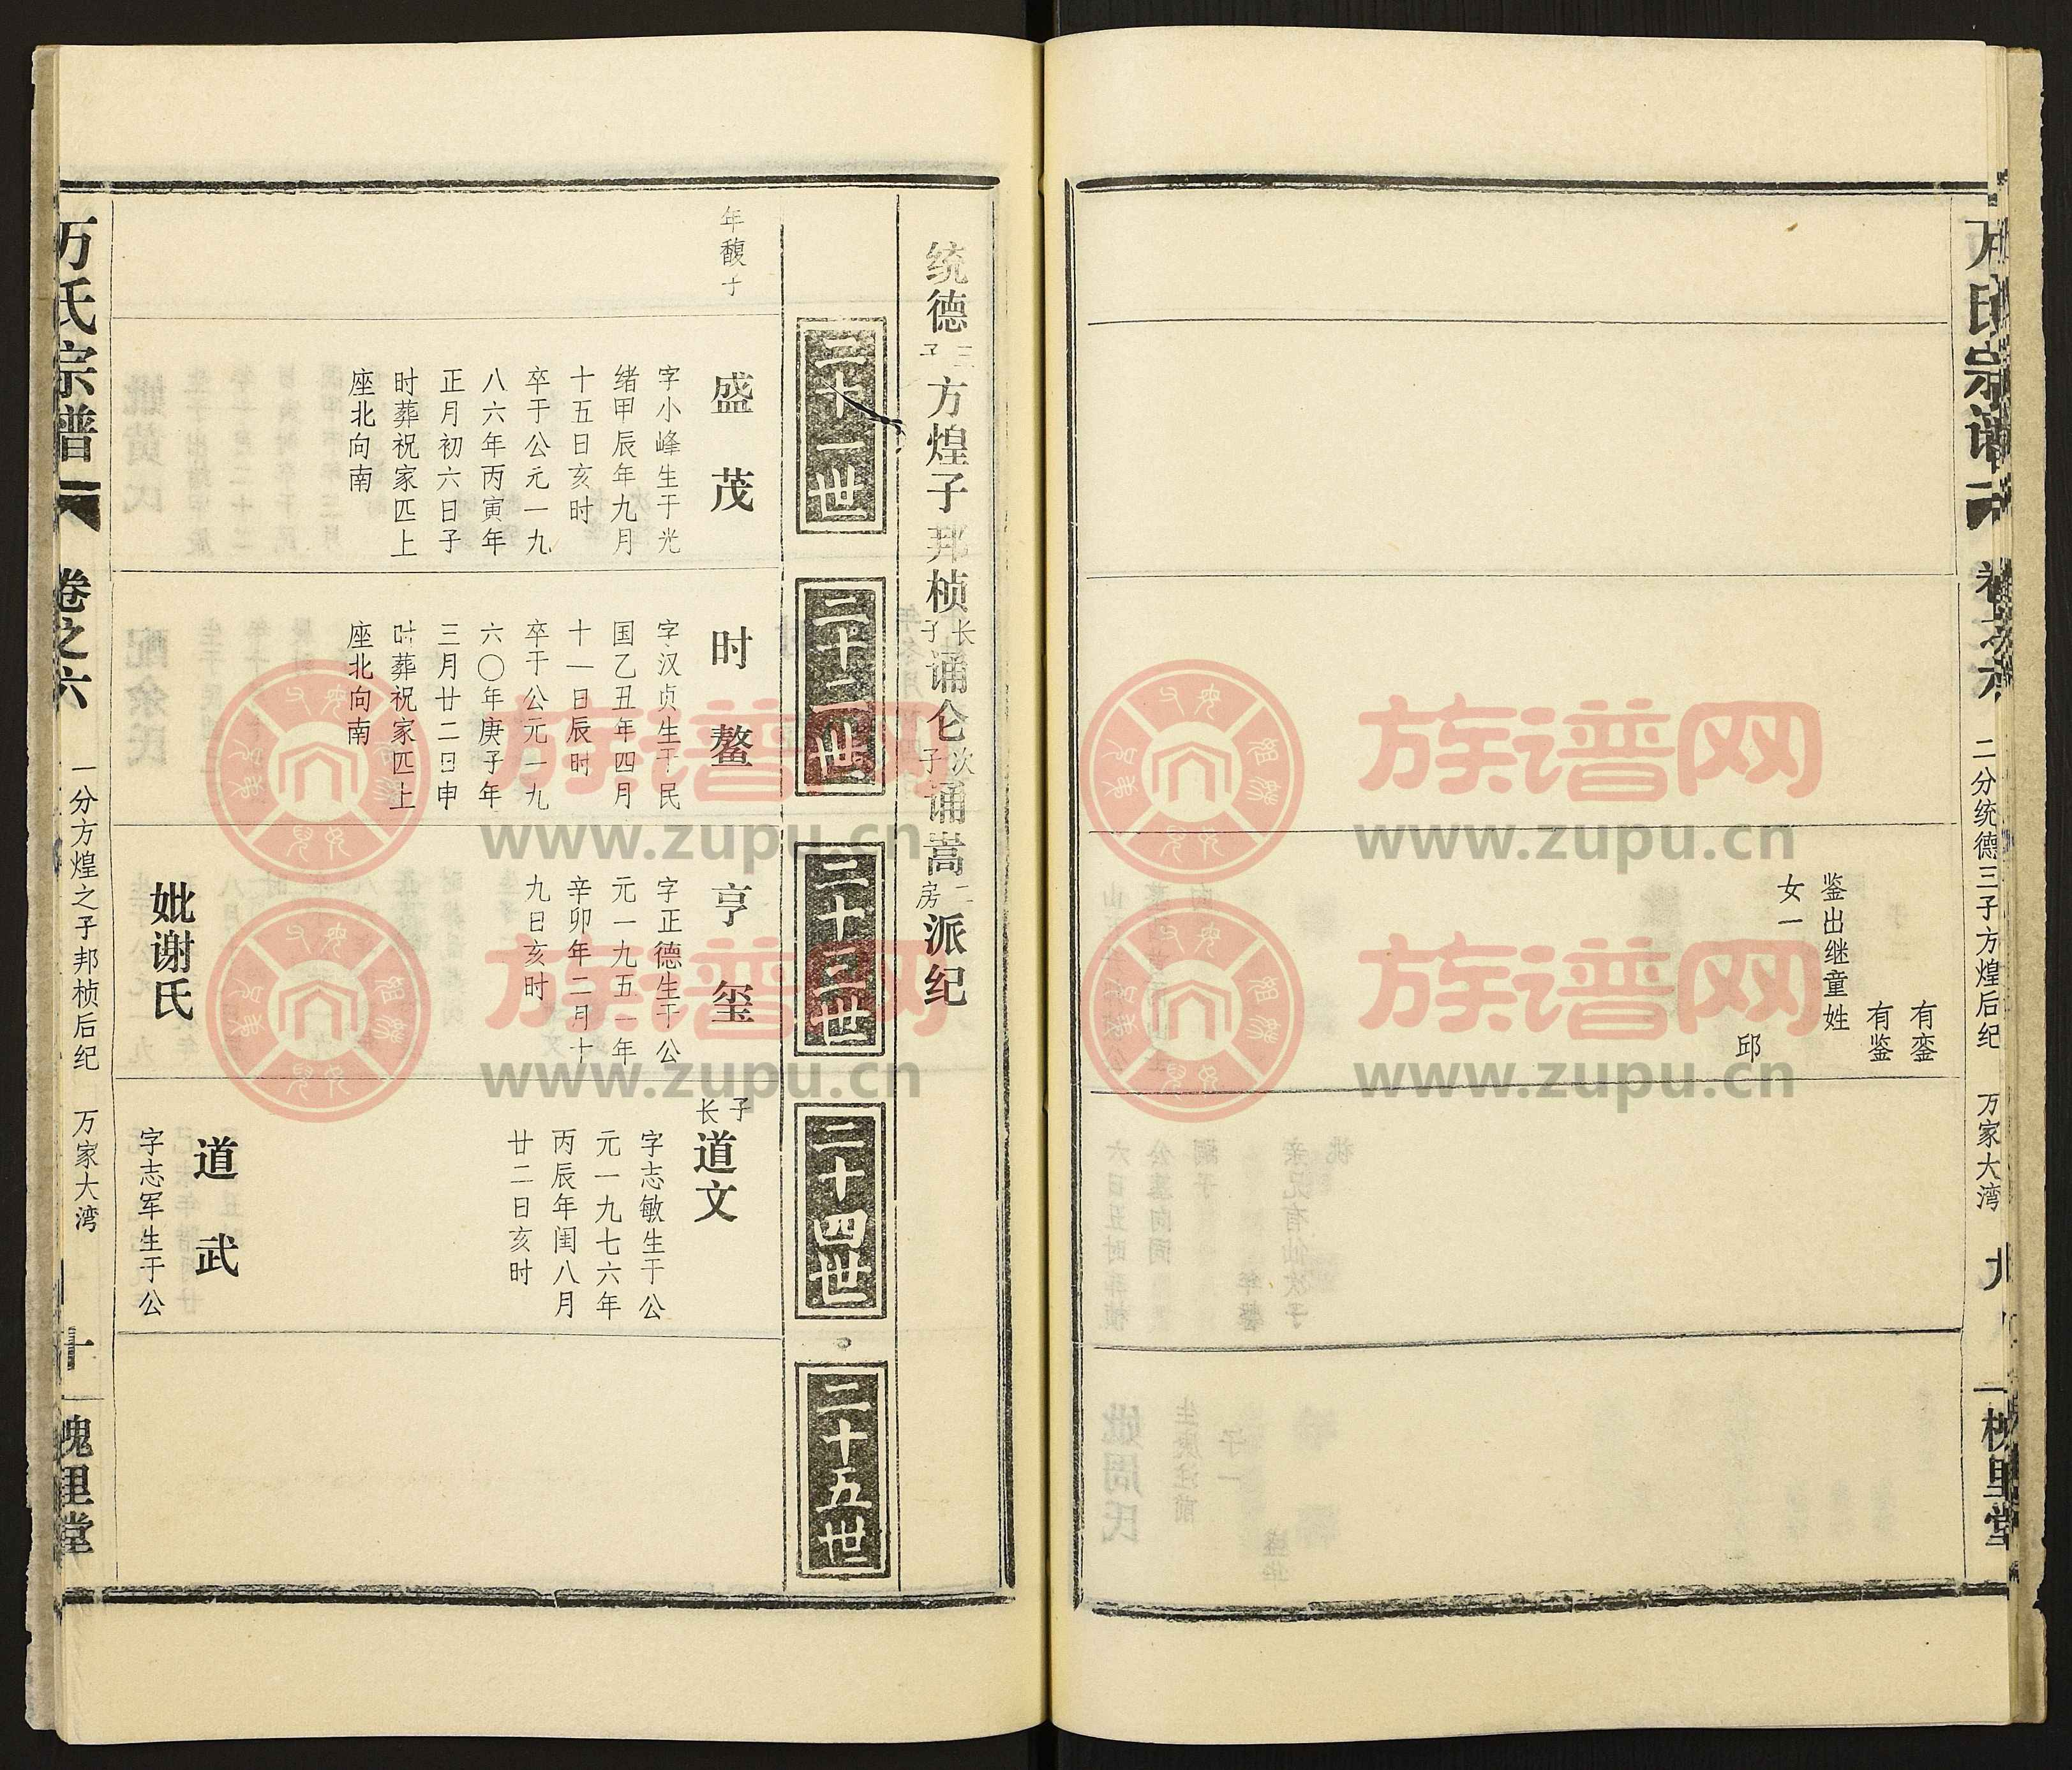 二分统德三子方煌后纪
万家大湾
九
有銮
有鉴
鉴出继童姓
女一
邱
统德三子方煌子邦桢长子诵仑次子诵嵩二房派纪
二十一世
二十二世
二十三世
二十四世
二十五世
年馥子
盛茂
字小峰生于光
绪甲辰年九月
十五日亥时
卒于公元一九
八六年丙寅年
正月初六日子
时葬祝家匹上
座北向南
时鳌
字汉贞生于民
国乙丑年四月
十一日辰时
卒于公元一九
六〇年庚子年
三月廿二日申
时葬祝家匹上
座北向南
亨玺
字正德生于公
元一九五一年
辛卯年二月十
九日亥时
妣谢氏
长子
道文
字志敏生于公
元一九七六年
丙辰年闰八月
廿二日亥时
道武
字志军生于公
万氏宗谱
卷之六
一分方煌之子邦桢后纪
万家大湾
十
槐里堂
族谱网
www.zupu.cn
族谱网
www.zupu.cn
族谱网
www.zupu.cn
族谱网
www.zupu.cn